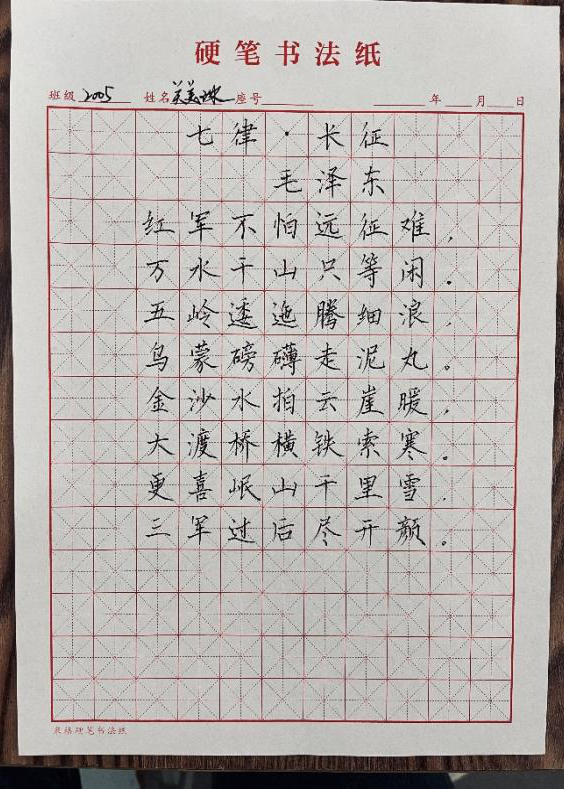 硬笔书法纸
班级 2005 姓名 吴美 座号 年 月 日
七律·长征
毛泽东
红军不怕远征难，
万水千山只等闲。
五岭逶迤腾细浪，
乌蒙磅礴走泥丸。
金沙水拍云崖暖，
大渡桥横铁索寒。
更喜岷山千里雪，
三军过后尽开颜。
硬笔书法纸